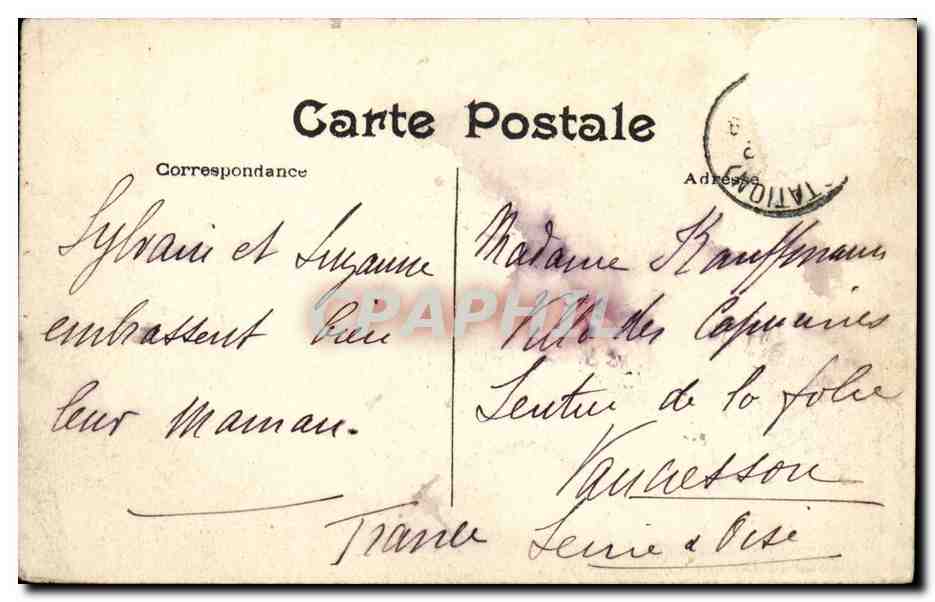 Carte Postale
Correspondance
Adresse
STATION
Sylvain et Suzanne
embrassent bien
leur maman.
Madame Kauffmann
Villa des Capucines
Sentier de la folie
Vaucresson
Seine & Oise
France
CPAPHIL